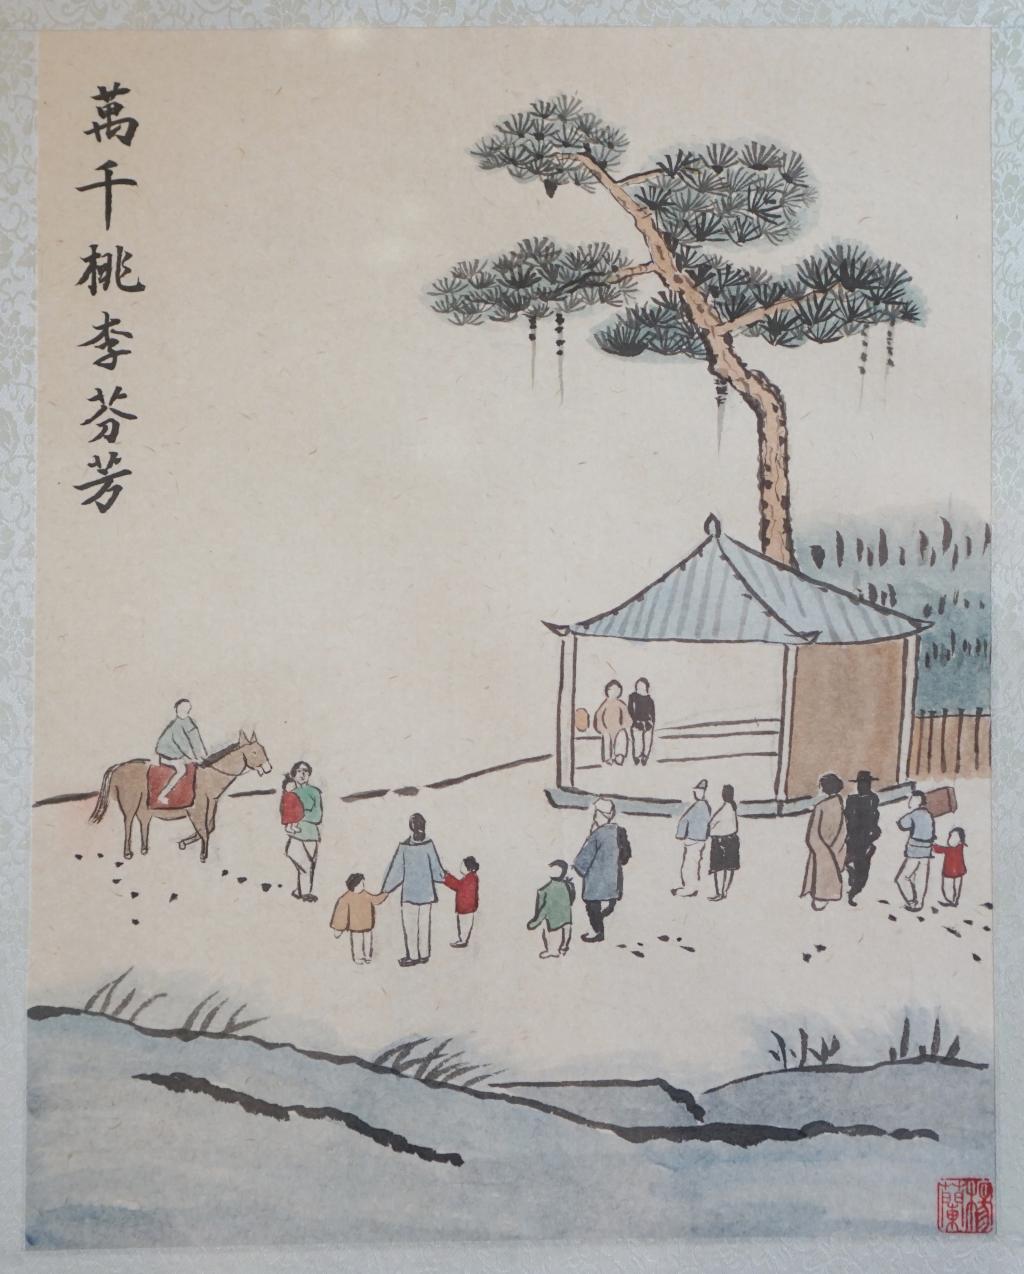 萬千桃李芬芳